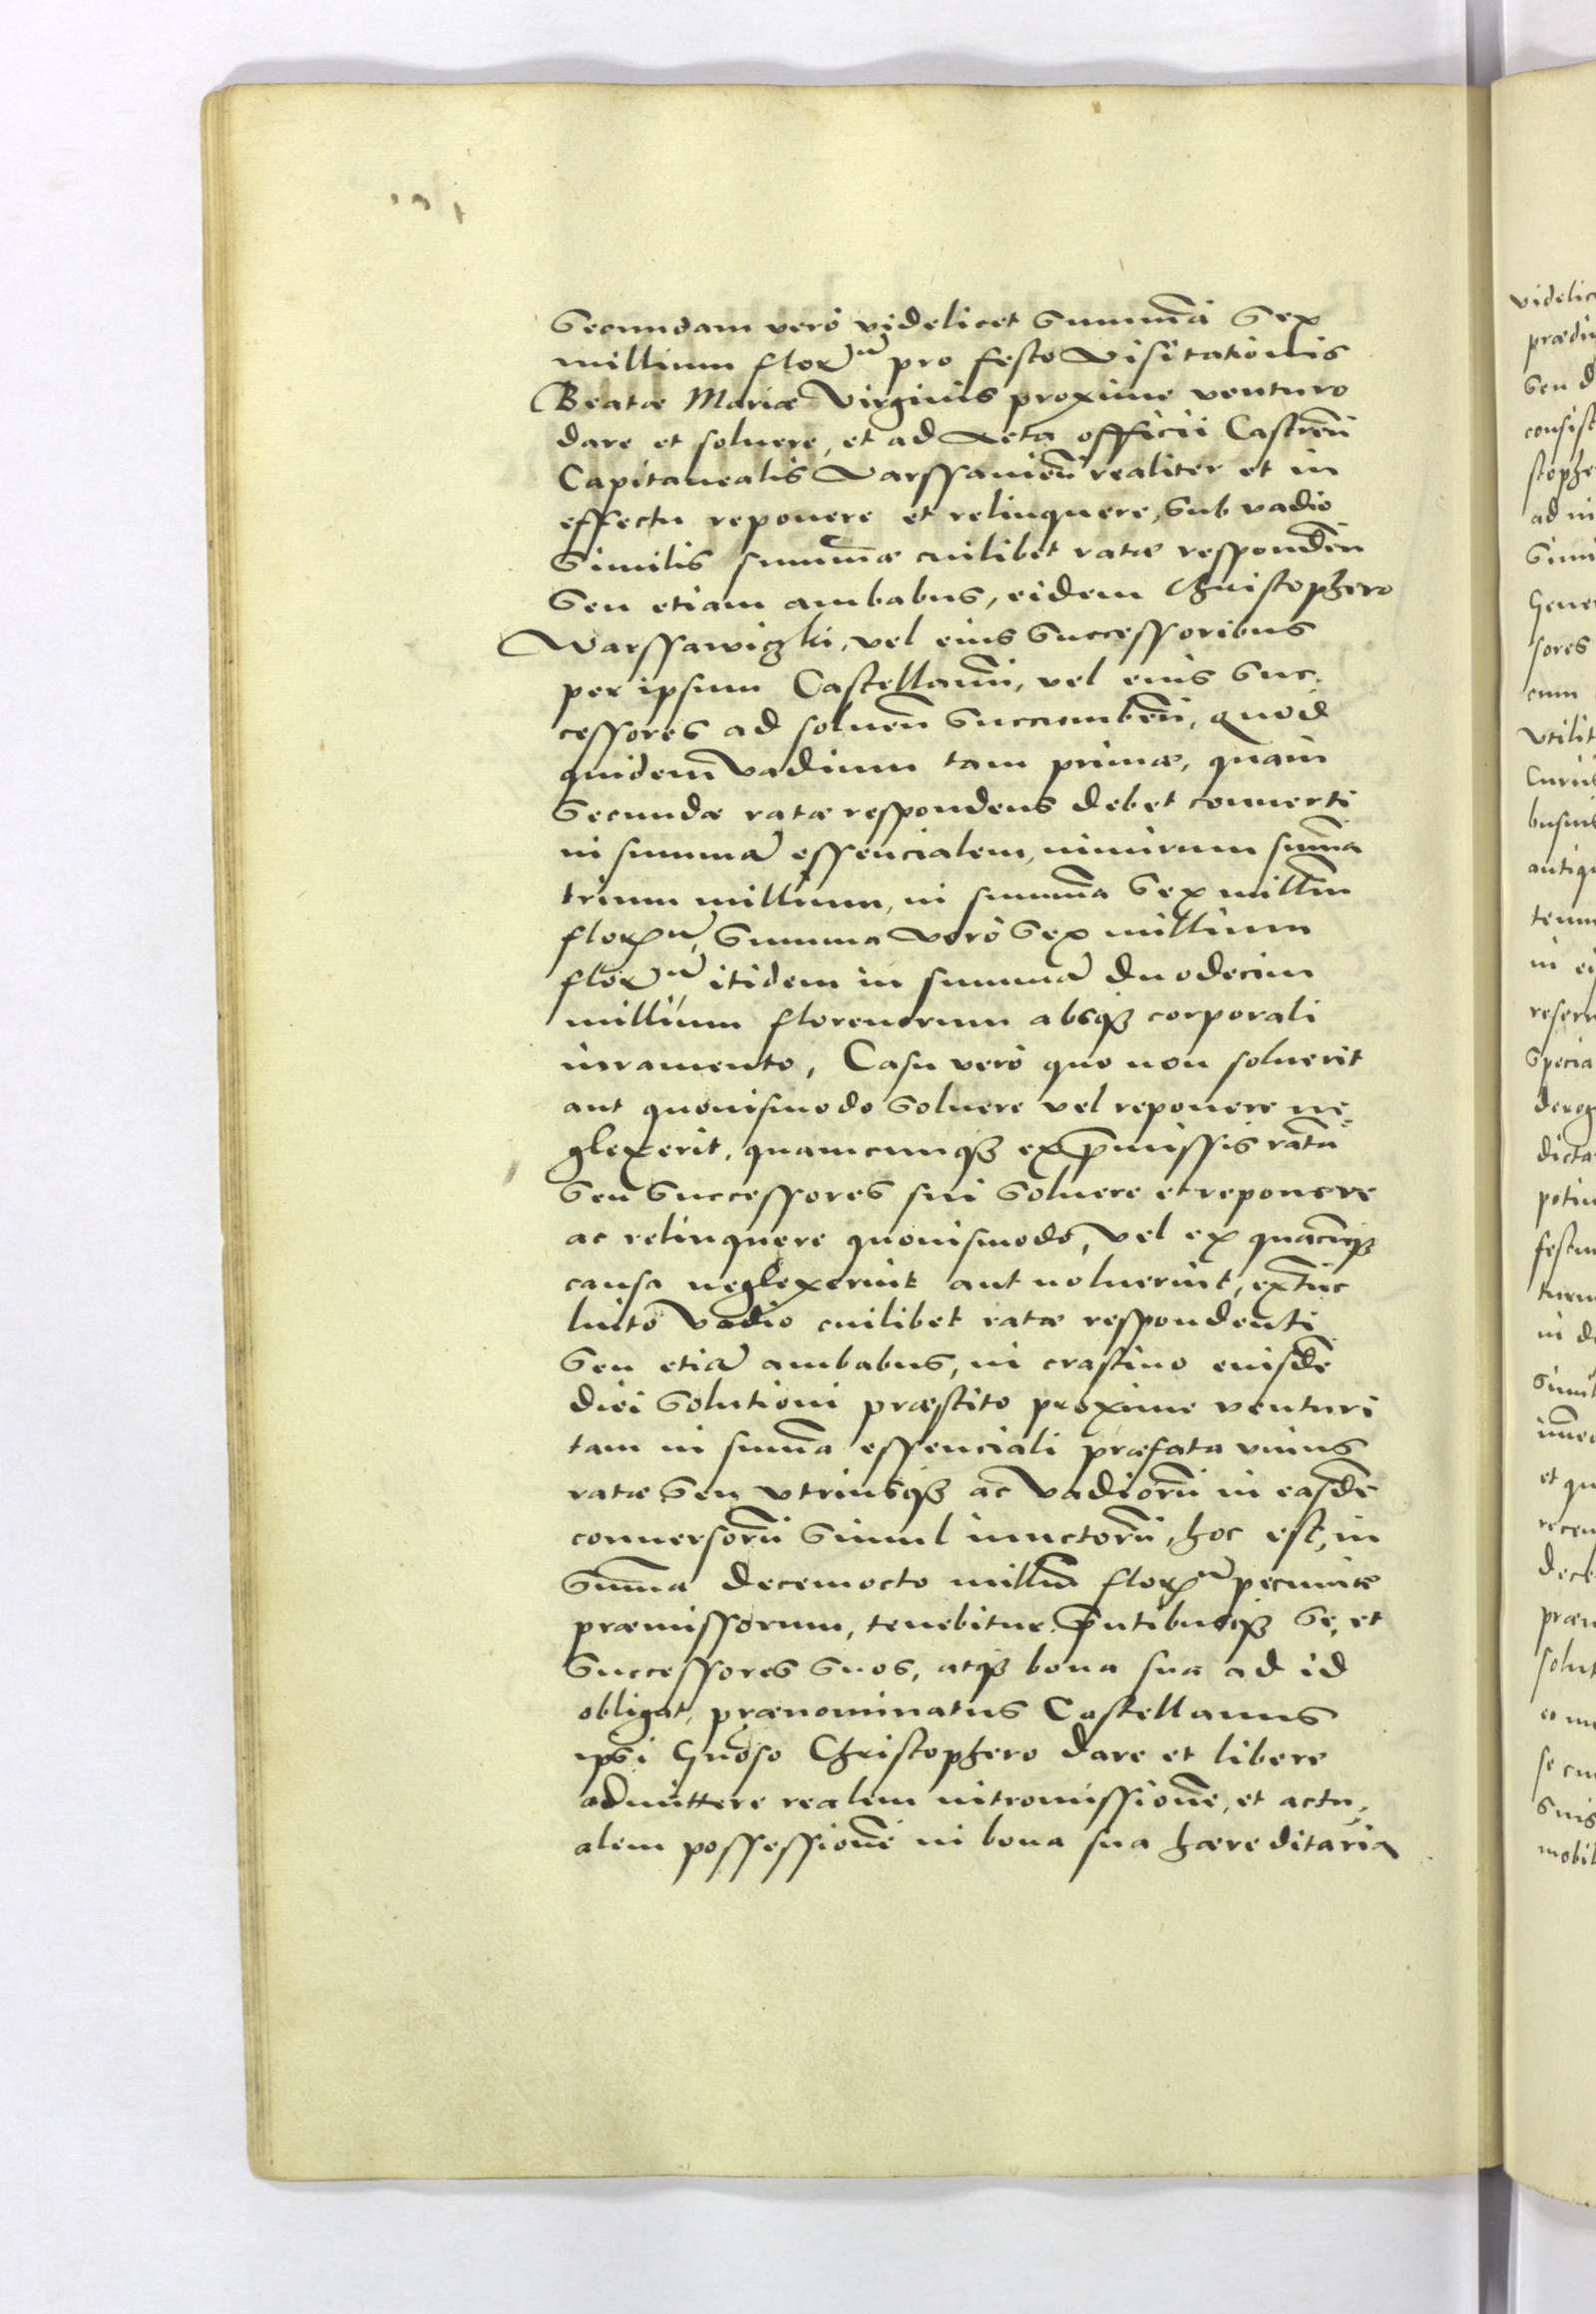 Secundam verò videlicet Summã Sex
millium florũ pro festo Visitationis
Beatæ Mariæ Virginis proxime venturo
dare et soluere, et ad Acta officii Castreñ
Capitanealis Varssavieñ realiter et in
effectu reponere et relinquere, Sub vadio
Similis summæ cuilibet ratæ respondeñ
Seu etiam ambabus, eidem Christophero
Warssawiczki, vel eius Successoribus
per ipsum Castellanũ, vel eius Suc-
cessores ad solueñ Succumbeñ, quod
quidem Vadium tam primæ, quam
Secundæ ratæ respondens debet conuerti
in summã essencialem, nimirum sum̃a
trium millium, in summa Sex milliũ
florũ, Summa Verò Sex millium
florũ itidem in summã duodecim
millium florenorum absq3 corporali
iuramento, Casu verò quo non soluerit
aut quouismodo Soluere vel reponere ne-
glexerit, quamcunq3 ex p̃missis ratã
Seu Successores sui Soluere et reponere
ac relinquere quouismodo, Vel ex quacũq3
causa neglexerint aut noluerint, extũc
luito Vadio cuilibet ratæ respondenti
Seu etiã ambabus, in crastino eiusdẽ
diei Solutioni præstito proxime venturi
tam in sum̃a essenciali præfata vnius
ratæ Seu vtriusq3 ac Vadiorũ in easdẽ
conuersorũ Simul iunctorũ, hoc est, in
Sum̃a decemocto milliũ florũ pecuniæ
præmissorum, tenebitur, p̃ntibusq3 Se, et
Successores Suos, atq3 bona sua ad id
obligat, prænominatus Castellanus
ipsi Gñoso Christophero dare et libere
admittere realem intromissionẽ, et actu-
alem possessionẽ in bona sua hæreditaria